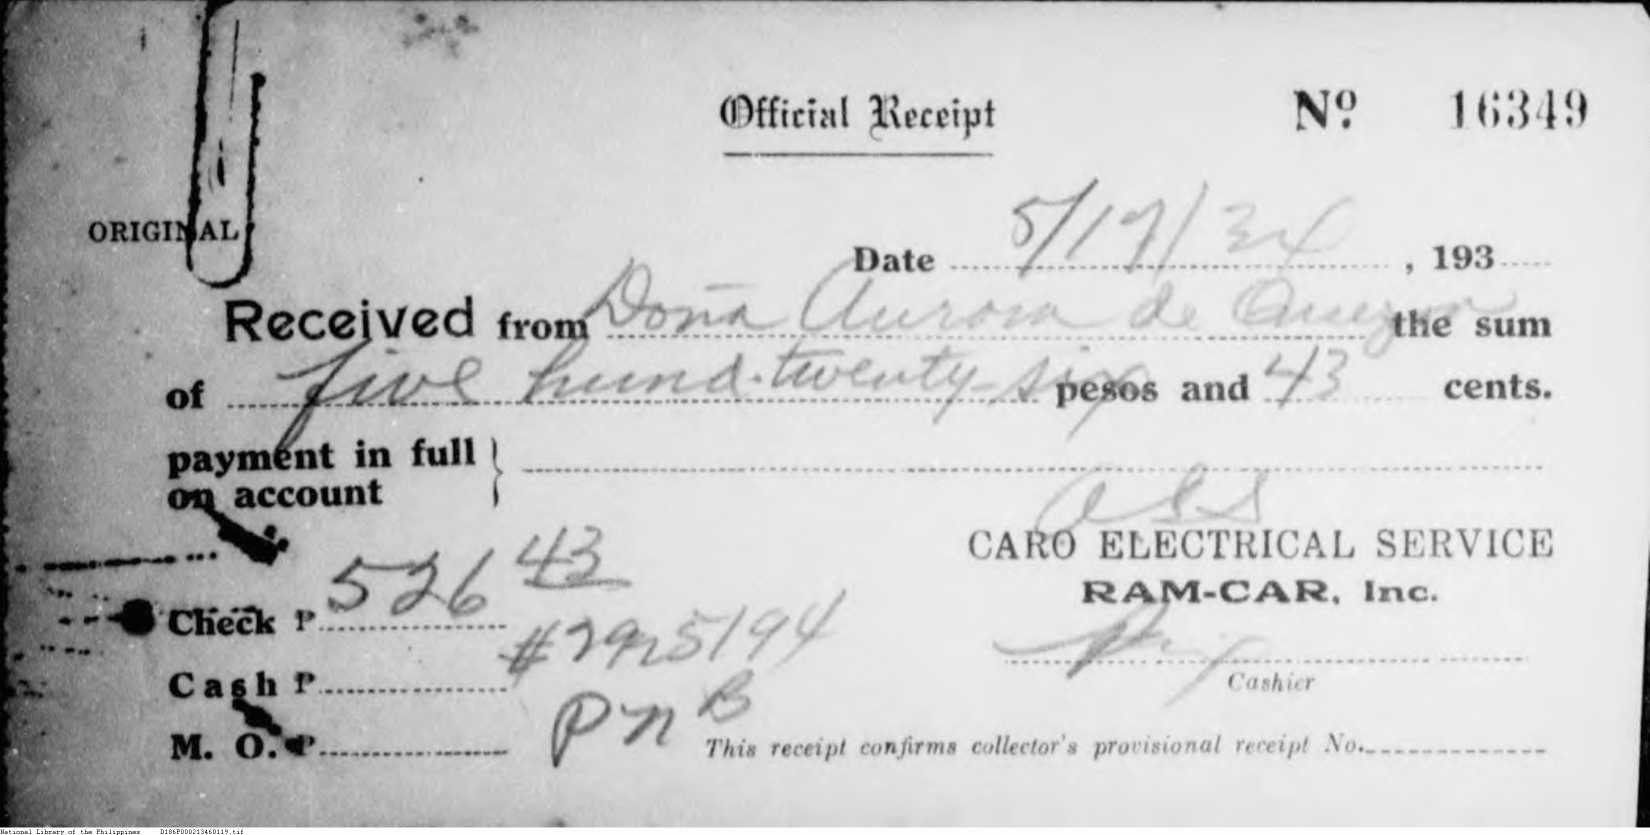 Official Receipt
Nº 16349
ORIGINAL
Date 5/17/34, 193
Received from Doña Aurora de Quezon the sum
of five hund. twenty-six pesos and 43 cents.
payment in full
on account
CARO ELECTRICAL SERVICE
RAM-CAR, Inc.
Check P 526 43
# 5194
Cash P
PNB
Cashier
M. O. P
This receipt confirms collector's provisional receipt No.
National Library of the Philippines D186P000213460119.tif